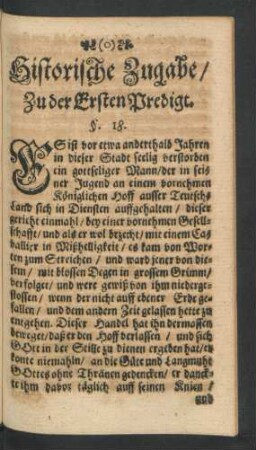 (o)
Historische Zugabe /
Zu der Ersten Predigt.
§. 18.
ES ist vor etwa anderthalb Jahren
in dieser Stadt seelig verstorben
ein gottseliger Mann / der in seis
ner Jugend an einem vornehmen
Königlichen Hoff ausser Teutschs
Land sich in Diensten auffgehalten / dieser
gericht einmahl / bey einer vornehmen Gesells
schafft / und als er wol bezecht / mit einem Cas
vallier in Mißhelligkeit / es kam von Wors
ten zum Streichen / und ward jener von dies
sem / mit blossen Degen in grossem Grimm /
verfolget / und were gewiß von ihm niederges
stossen / wenn der nicht auff ebener Erde ges
fallen / und dem andern Zeit gelassen hette zu
entgehen. Dieser Handel hat ihn dermassen
beweget / daß er den Hoff verlassen / und sich
GOtt in der Stille zu dienen ergeben hat / er
konte niemahln / an die Güte und Langmuht
GOttes ohne Thränen gedencken / er danck-
te ihm davor täglich auff seinen Knien /
und